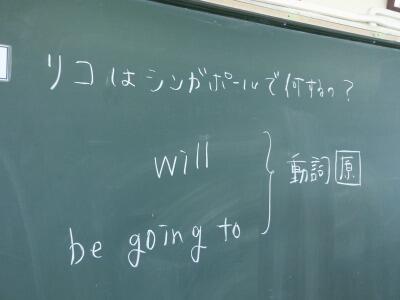 リコはシンガポールで何するっ?
will
be going to
動詞 原